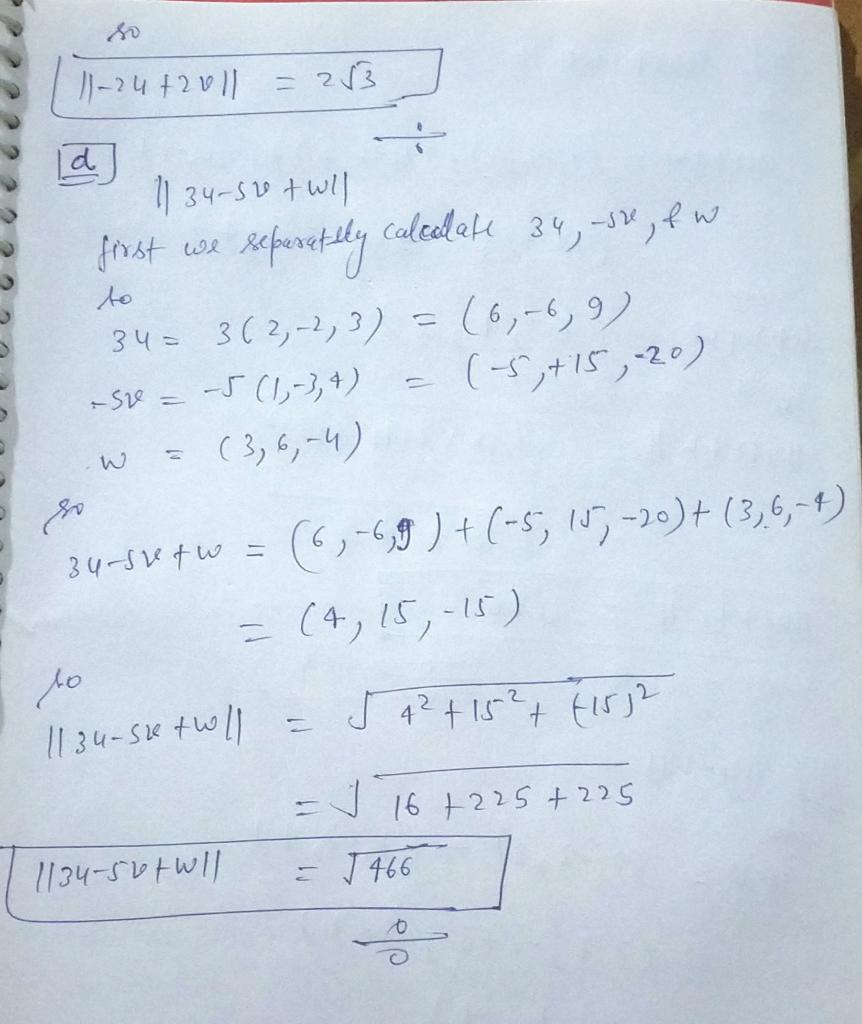 so
||-2u+2v|| = 2√3
d
||3u-5v+w||
first we separatelly calculate 3u, -5v, & w
so
3u = 3(2,-2,3) = (6,-6,9)
-5v = -5(1,-3,4) = (-5,+15,-20)
w = (3,6,-4)
so
3u-5v+w = (6,-6,9)+(-5,15,-20)+(3,6,-4)
= (4,15,-15)
so
||3u-5v+w|| = √4²+15²+(-15)²
= √16+225+225
||3u-5v+w|| = √466